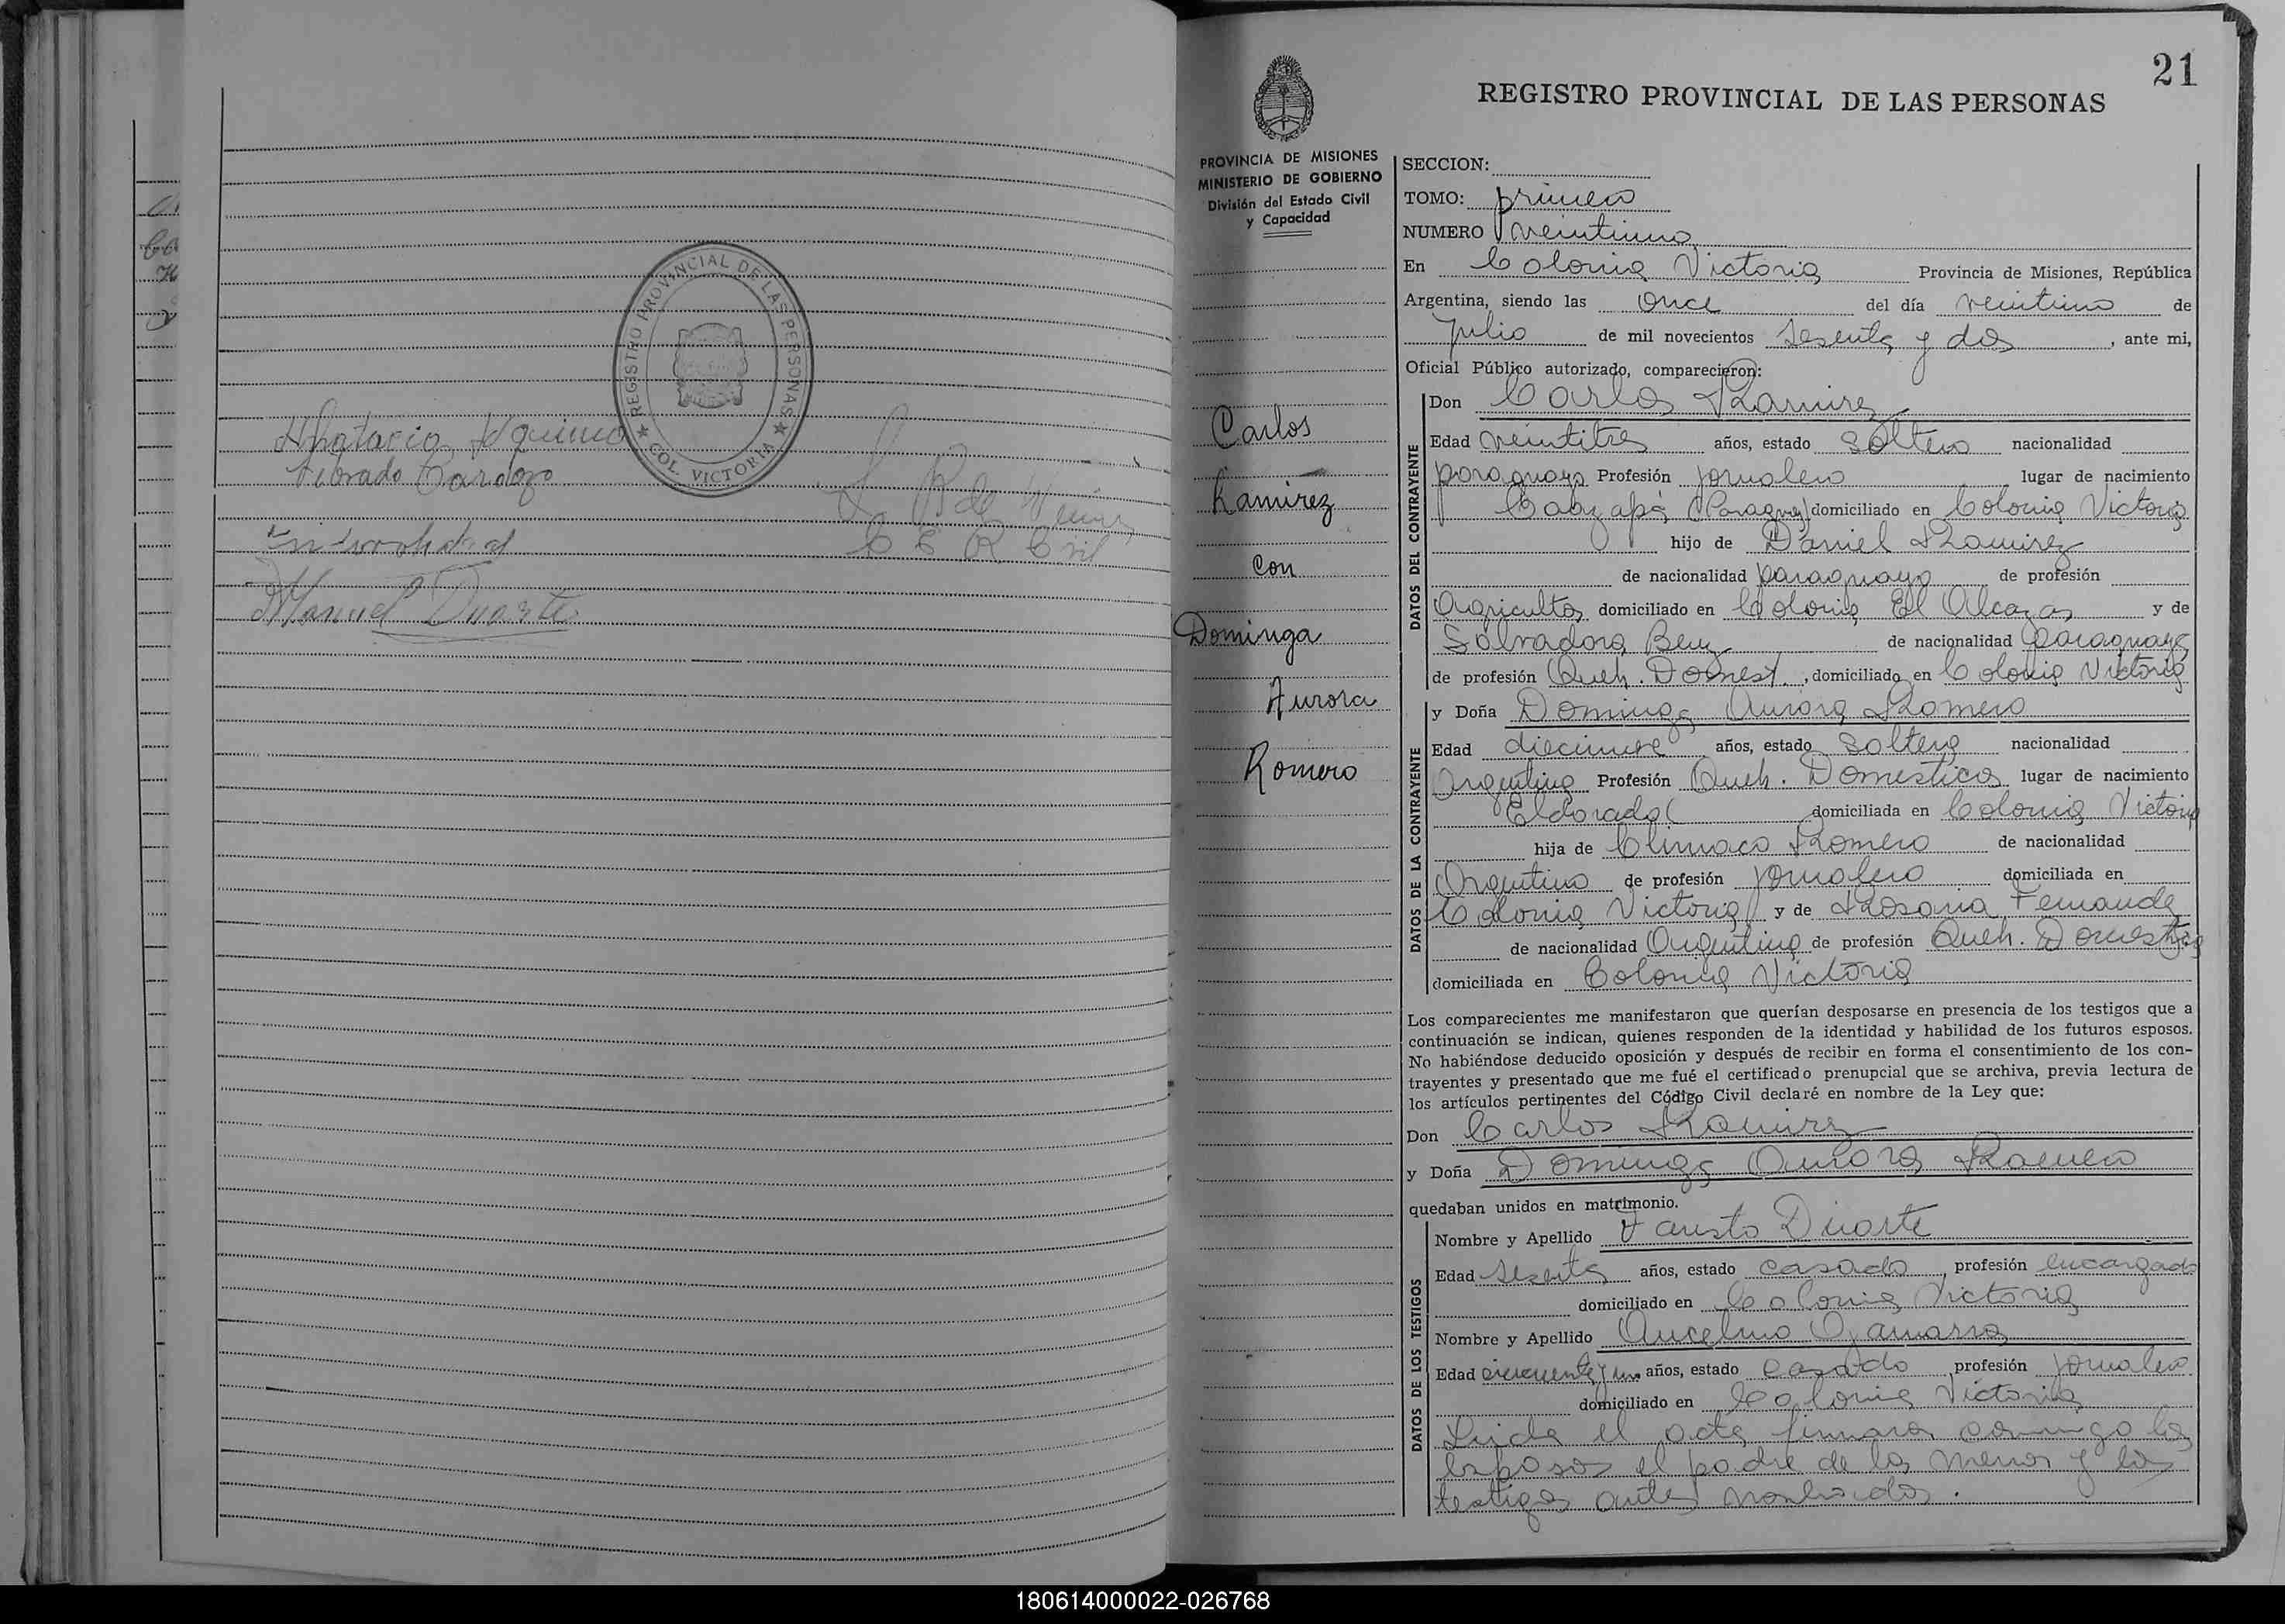 REGISTRO PROVINCIAL DE LAS PERSONAS
COL. VICTORIA
Librado Cardozo
Manuel Duarte
21
REGISTRO PROVINCIAL DE LAS PERSONAS
PROVINCIA DE MISIONES
MINISTERIO DE GOBIERNO
División del Estado Civil
y Capacidad
Carlos
Ramirez
con
Dominga
Aurora
Romero
SECCION:
TOMO: primero
NUMERO veintiuno
En Colonia Victoria Provincia de Misiones, República
Argentina, siendo las once del día veintiuno de
julio de mil novecientos sesenta y dos, ante mi,
Oficial Público autorizado, comparecieron:
DATOS DEL CONTRAYENTE
Don Carlos Ramirez
Edad veintitres años, estado soltero nacionalidad
paraguayo Profesión jornalero lugar de nacimiento
Caazapá (Paraguay) domiciliado en Colonia Victoria
hijo de Daniel Ramirez
de nacionalidad paraguayo de profesión
Agricultor domiciliado en Colonia El Alcazar y de
Salvadora de nacionalidad paraguaya
de profesión Queh. Domest., domiciliado en Colonia Victoria
DATOS DE LA CONTRAYENTE
y Doña Dominga Aurora Romero
Edad años, estado soltera nacionalidad
Argentina Profesión Queh. Domesticos lugar de nacimiento
Eldorado domiciliada en Colonia Victoria
hija de Climaco Romero de nacionalidad
Argentino de profesión jornalero domiciliada en
Colonia Victoria y de Fernandez
de nacionalidad Argentina de profesión Queh. Domesticos
domiciliada en Colonia Victoria
Los comparecientes me manifestaron que querían desposarse en presencia de los testigos que a
continuación se indican, quienes responden de la identidad y habilidad de los futuros esposos.
No habiéndose deducido oposición y después de recibir en forma el consentimiento de los con-
trayentes y presentado que me fué el certificado prenupcial que se archiva, previa lectura de
los artículos pertinentes del Código Civil declaré en nombre de la Ley que:
Don Carlos Ramirez
y Doña Dominga Aurora Romero
quedaban unidos en matrimonio.
DATOS DE LOS TESTIGOS
Nombre y Apellido Fausto Duarte
Edad sesenta años, estado casado, profesión encargado
domiciliado en Colonia Victoria
Nombre y Apellido Ancelmo Gamarra
Edad cincuenta y un años, estado casado, profesión jornalero
domiciliado en Colonia Victoria
Leida el acta firmaron conmigo los
esposos el padre de la menor y los
testigos antes nombrados.
180614000022-026768